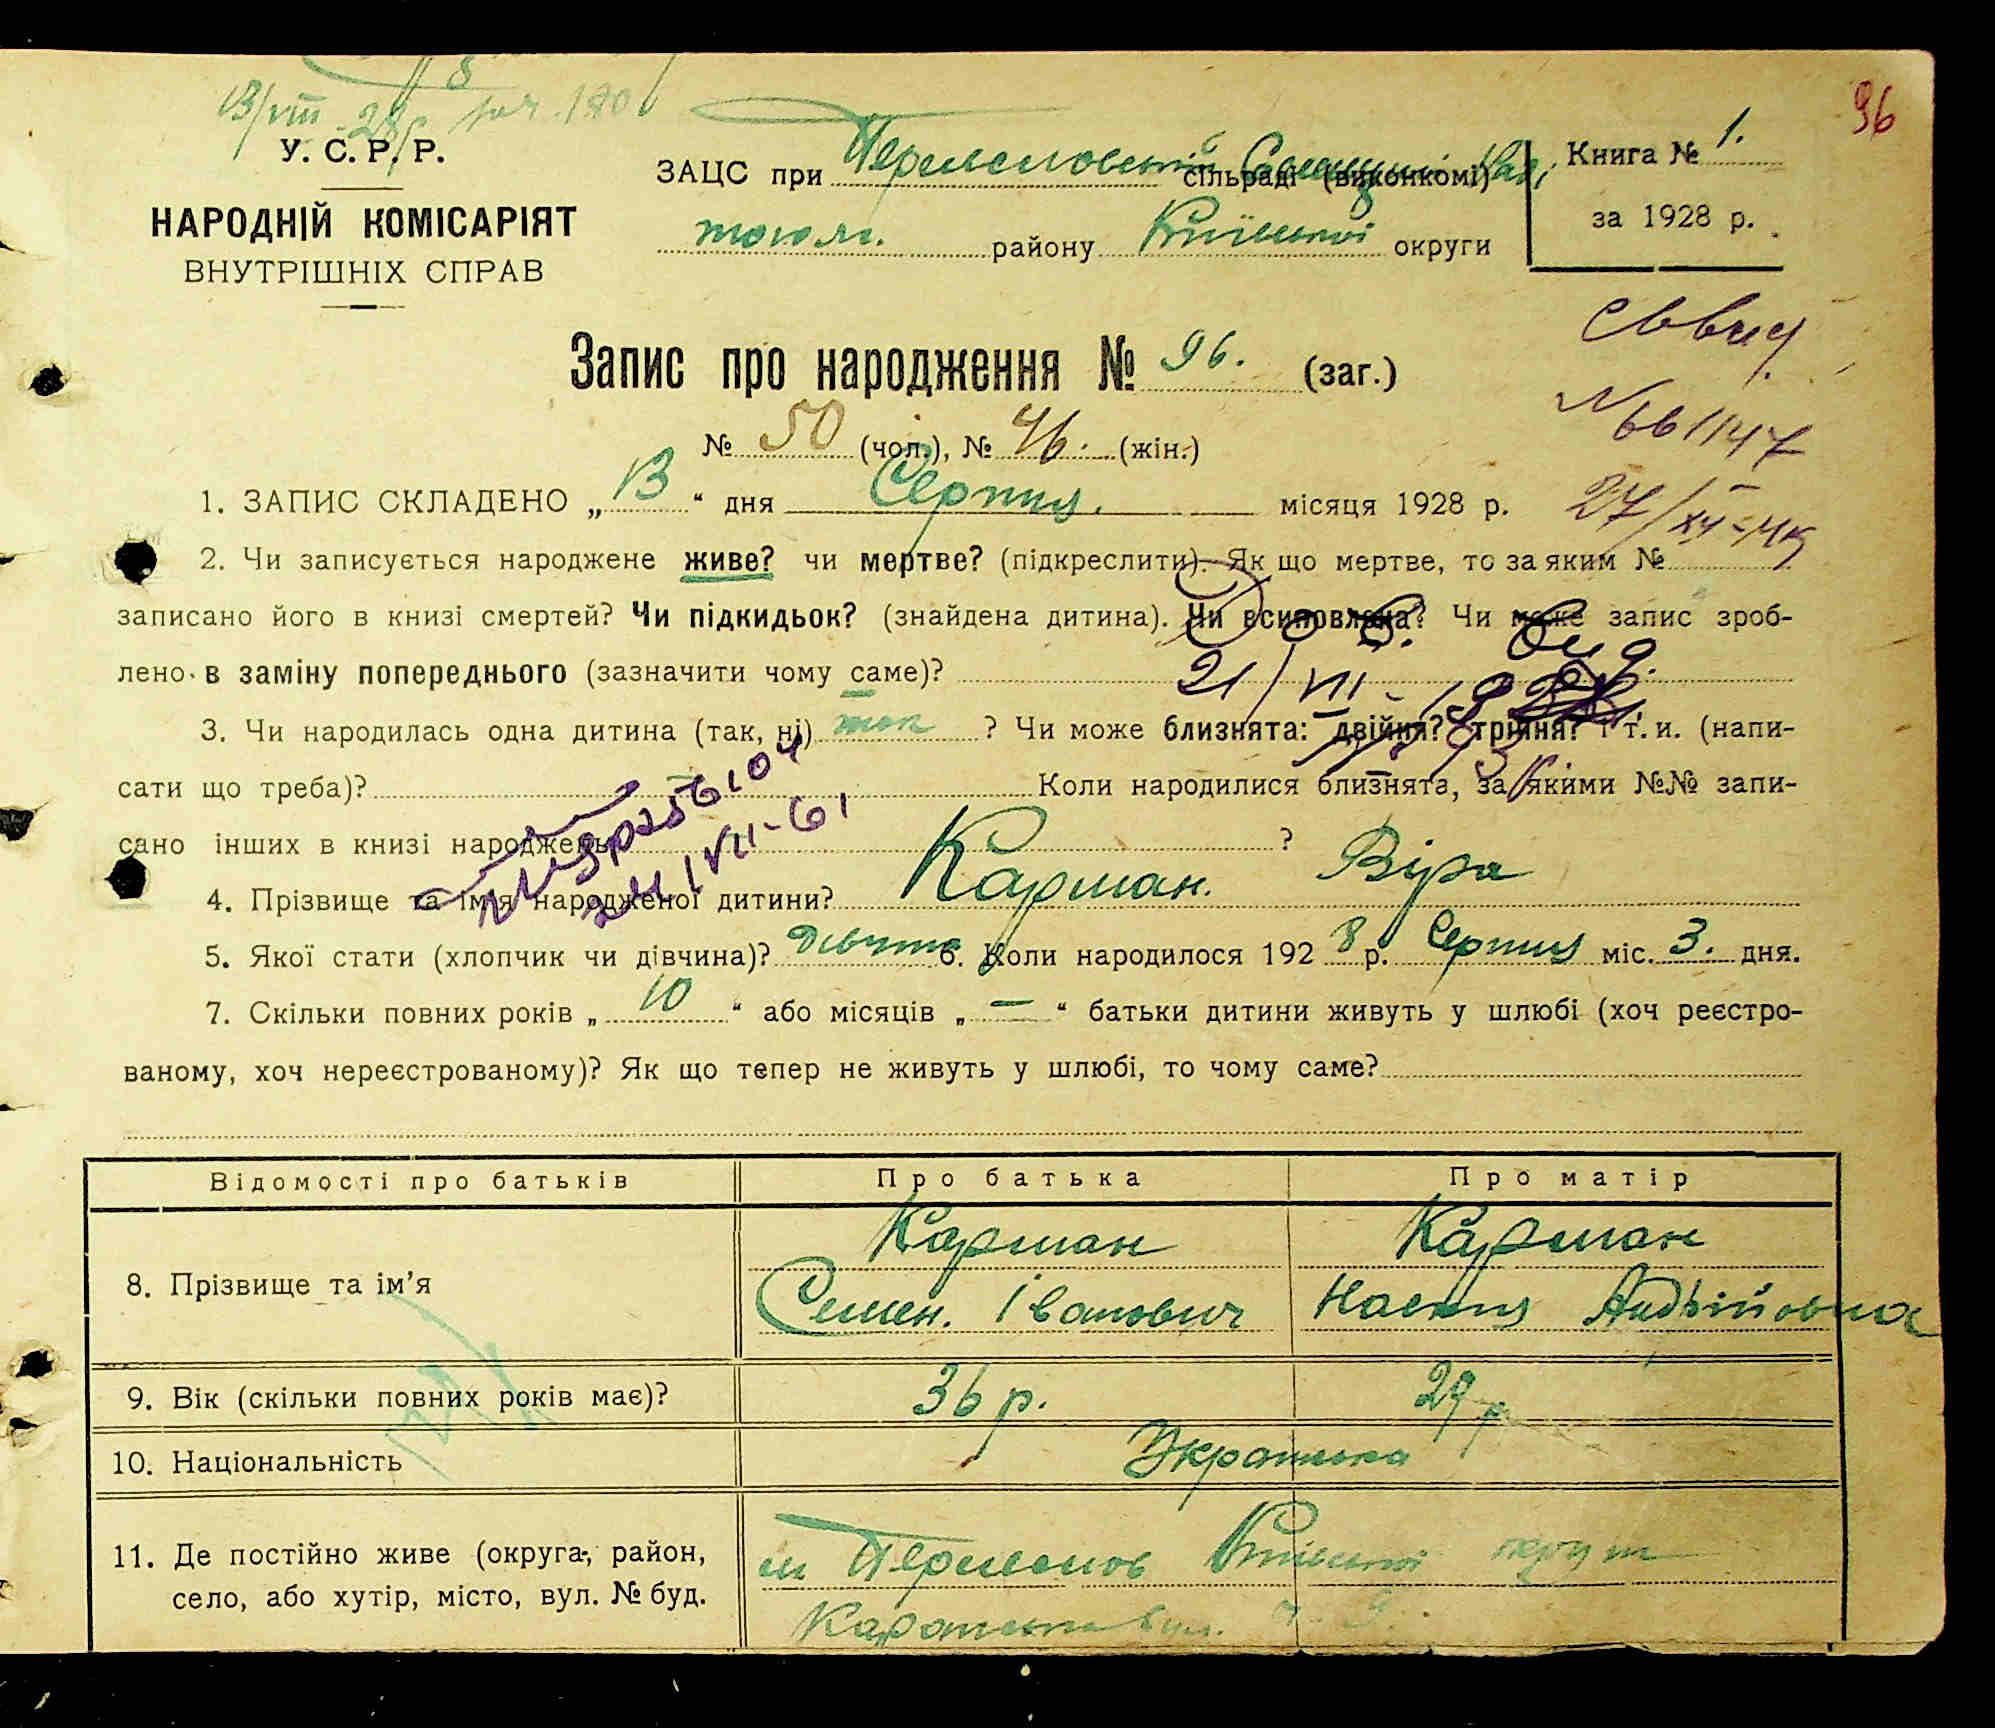 96
13/VIII 28 р.
У. С. Р. Р.
НАРОДНІЙ КОМІСАРІЯТ
ВНУТРІШНІХ СПРАВ
ЗАЦС при сільраді (виконкомі) Раді
тогож району Київської округи
Книга № 1.
за 1928 р.
Запис про народження № 96. (заг.)
№ 50 (чол.), № 46. (жін.)
№ 661147
1. ЗАПИС СКЛАДЕНО „ 13 “ дня Серпня. місяця 1928 р.
2. Чи записується народжене живе? чи мертве? (підкреслити). Як що мертве, то за яким №
записано його в книзі смертей? Чи підкидьок? (знайдена дитина). Чи всиновлена? Чи може запис зроб-
лено в заміну попереднього (зазначити чому саме)?
21/VII
3. Чи народилась одна дитина (так, ні) так ? Чи може близнята: двійня? трійня? і т. и. (напи-
сати що треба)? Коли народилися близнята, за якими №№ запи-
сано інших в книзі народжень ?
24/VII-61
4. Прізвище та ім'я народженої дитини? Карман. Віра
5. Якої стати (хлопчик чи дівчина)? дівчина 6. Коли народилося 192 8 р. Серпня міс. 3. дня.
7. Скільки повних років „ 10 “ або місяців „ — “ батьки дитини живуть у шлюбі (хоч реєстро-
ваному, хоч нереєстрованому)? Як що тепер не живуть у шлюбі, то чому саме?
Відомості про батьків Про батька Про матір
8. Прізвище та ім'я Карман Семен. Іванович Карман Настя Андрійовна
9. Вік (скільки повних років має)? 36 р. 29 р
10. Національність Українська
11. Де постійно живе (округа, район, село, або хутір, місто, вул. № буд. м Київської округи вул.